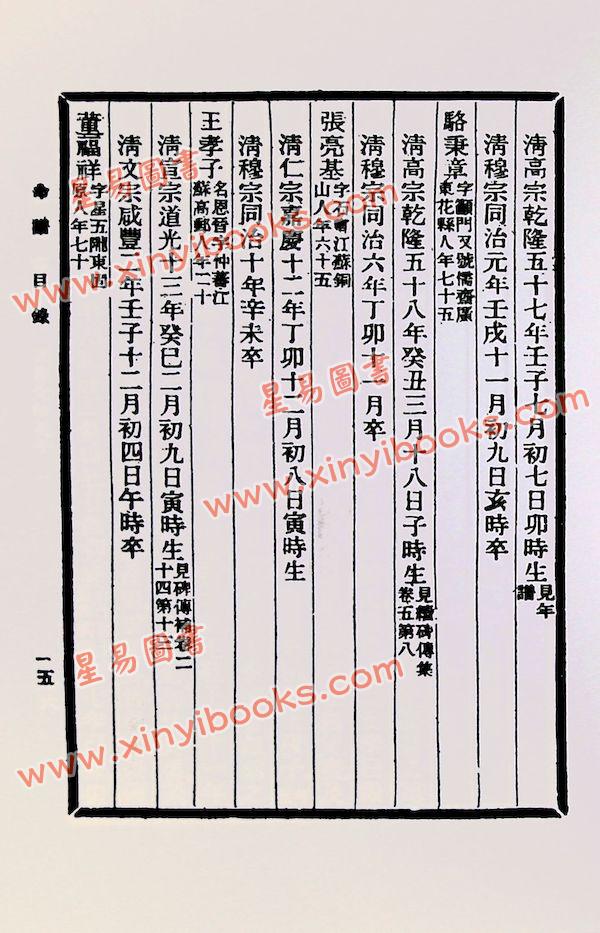 清高宗乾隆五十七年壬子七月初七日卯時生 見年譜
清穆宗同治元年壬戌十一月初九日亥時卒
駱秉章 字籲門又號儒齋廣東花縣人年七十五
清高宗乾隆五十八年癸丑三月十八日子時生 見續碑傳集卷五第八
清穆宗同治六年丁卯十一月卒
張亮基 字石江蘇銅山人年六十五
清仁宗嘉慶十二年丁卯十二月初八日寅時生
清穆宗同治十年辛未卒
王孝子 名恩晉字仲蕃江蘇高郵年二十
清宣宗道光十三年癸巳二月初九日寅時生 見碑傳補卷二十四第十
清文宗咸豐二年壬子十二月初四日午時卒
董福祥 字星五隴東固原人年七十
命譜 目錄
一五
星易圖書
www.xinyibooks.com
星易圖書
www.xinyibooks.com
星易圖書
www.xinyibooks.com
星易圖書
www.xinyibooks.com